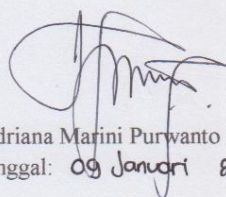 driana Marini Purwanto
nggal: 09 Januari